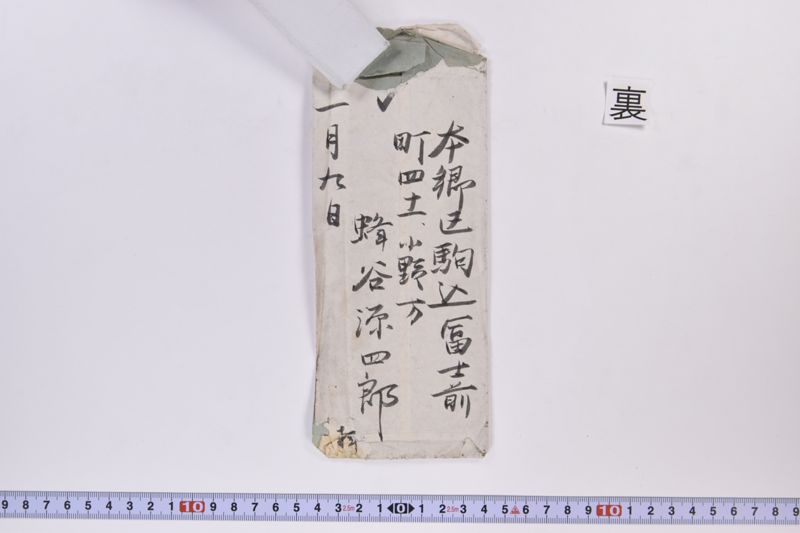 本郷区駒込富士前
町四十一、小野方
蜂谷源四郎
一月九日
裏
9 8 7 6 5 4 3 2 1 10 9 8 7 6 5 4 3 2.5m 2 1 0 1 2 2.5m 3 4 5 6 7 8 9 10 1 2 3 4 5 6 7 8 9